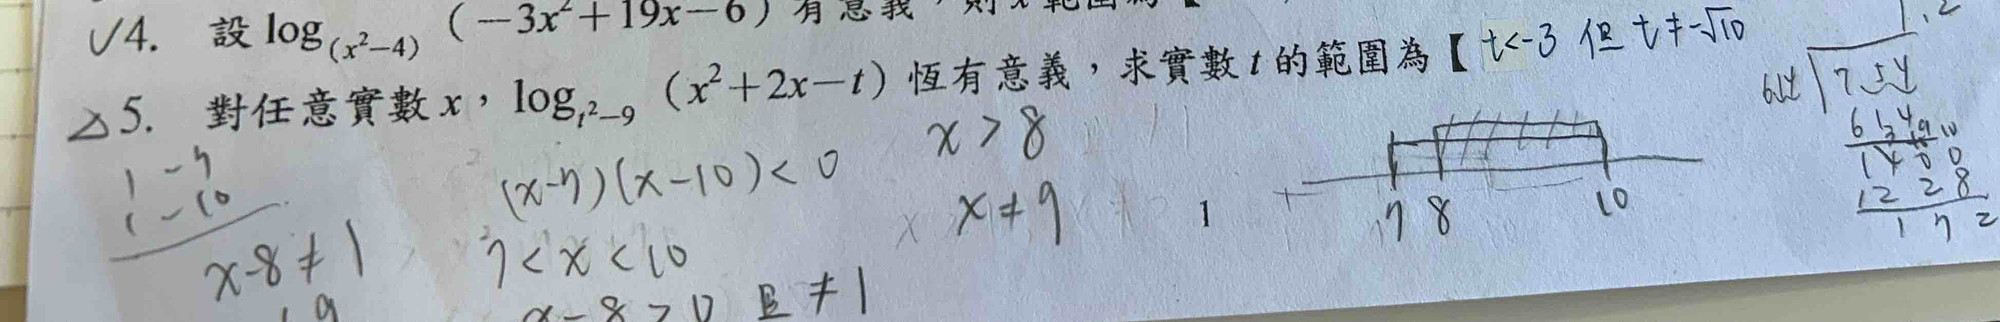 √4. 設 log₍ₓ²₋₄₎ (-3x²+19x-6) 有意義,則
△5. 對任意實數 x,log_{t²-9} (x²+2x-t) 恆有意義,求實數 t 的範圍為【 t<-3 但 t≠-√10
1 -7
1 -10
x-8≠1
9
(x-7)(x-10)<0
7<x<10
x-8>0 且 ≠1
x>8
x≠9
1
7 8 10
1.2
614 754
614
1400
1228
172